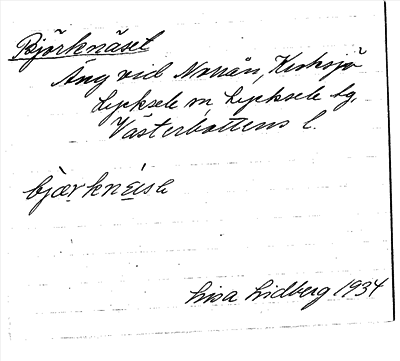 Björknäset
Äng vid Norrån, Kroksjö
Lycksele sn, Lycksele lg.
Västerbottens l.
bjærknėisə
Lisa Lidberg 1934